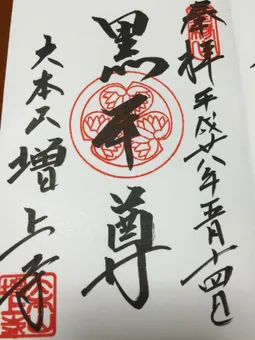 奉拝 平成廿八年五月十四日
黒本尊
大本山 増上寺